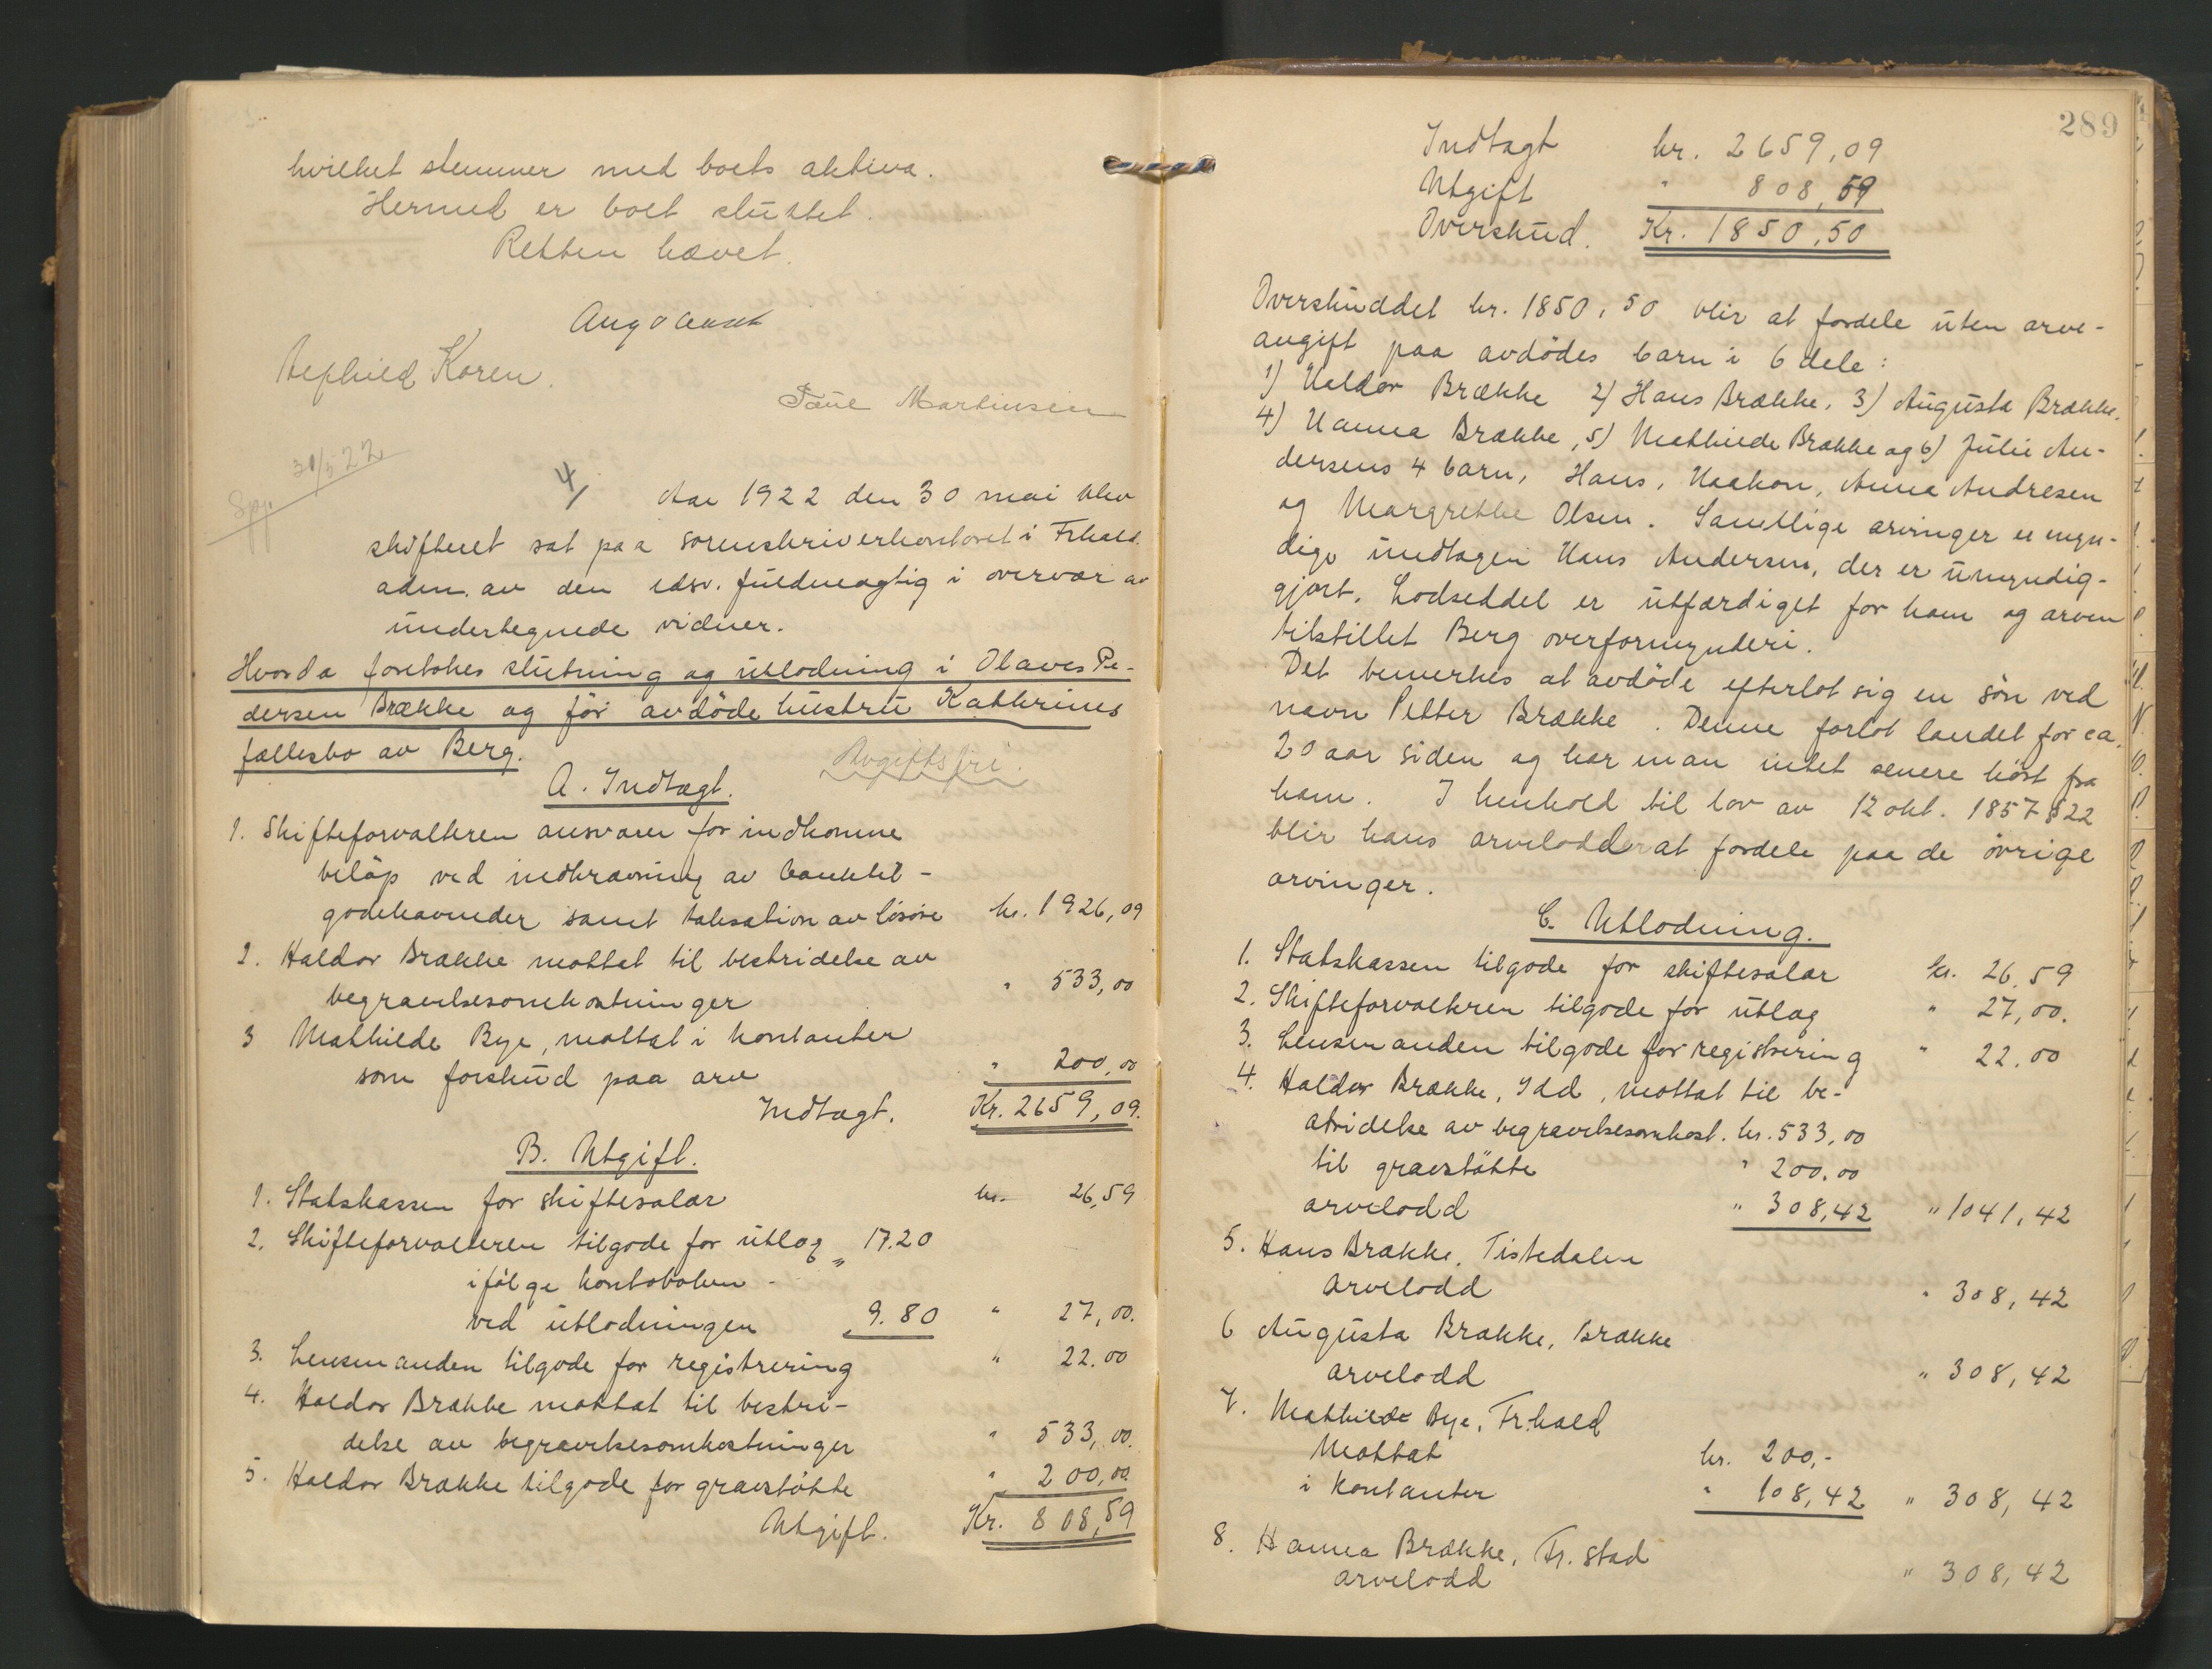 hvilket stemmer med boets aktiva.
Hermed er boet sluttet.
Retten hævet.
Koren.
Paul Martinsen
31/5 22
4/ Aar 1922 den 30 mai blev
skifteret sat paa sorenskriverkontoret i Frhald.
adm. av den edsv. fuldmægtig i overvær av
undertegnede vidner.
Hvorda foretokes slutning og utlodning i Olaves Pe-
dersen Brække og før avdøde hustru Kathrines
fællesbo av Berg.
Avgiftsfri.
A. Indtægt.
1. Skifteforvalteren ansvarer for indkomne
beløp ved indkrævning av banktil-
godehavender samt taksation av løsøre kr. 1926,09
2. Haldor Brække mottat til bestridelse av
begravelsesomkostninger " 533,00
3 Mathilde Bye, mottat i kontanter
som forskud paa arv " 200,00
Indtægt. Kr. 2659,09.
B. Utgift.
1. Statskassen for skiftesalær kr. 26,59
2. Skifteforvalteren tilgode for utlæg " 17.20
ifølge kontoboken -
ved utlodningen 9.80 " 27,00.
3. Lensmanden tilgode for registrering " 22.00
4. Haldor Brække mottat til bestri-
delse av begravelsesomkostninger " 533,00.
5. Haldor Brække tilgode for gravstøtte " 200,00.
Utgift. Kr. 808,59
289
Indtægt kr. 2659,09
Utgift " 808,59
Overskud. Kr. 1850,50
Overskuddet kr. 1850,50 blir at fordele uten arve-
avgift paa avdødes barn i 6 dele:
1) Haldor Brække 2) Hans Brække, 3) Augusta Brække,
4) Hanna Brække, 5) Mathilde Brække og 6) Julie An-
dersens 4 barn, Hans, Haakon, Anna Andresen
og Margrethe Olsen. Samtlige arvinger er myn-
dige undtagen Hans Andersen, der er umyndig-
gjort. Lodseddel er utfærdiget for ham og arven
tilstillet Berg overformynderi.
Det bemerkes at avdøde efterlot sig en søn ved
navn Petter Brække. Denne forlot landet for ca.
20 aar siden og har man intet senere hørt fra
ham. I henhold til lov av 12 okt. 1857 § 22
blir hans arvelodd at fordele paa de øvrige
arvinger.
C. Utlodning.
1. Statskassen tilgode for skiftesalær kr. 26,59
2. Skifteforvalteren tilgode for utlæg " 27,00.
3. Lensmanden tilgode for registrering " 22.00
4. Haldor Brække, Idd, mottat til be-
stridelse av begravelsesomkost. kr. 533,00
til gravstøtte " 200.00
arvelodd " 308,42 " 1041,42
5. Hans Brække, Tistedalen
arvelodd " 308,42
6 Augusta Brække, Brække
arvelodd " 308,42
7. Mathilde Bye, Fr.hald
Mottat kr. 200,-
i kontanter " 108,42 " 308,42
8. Hanna Brække, Fr.stad
arvelodd " 308,42